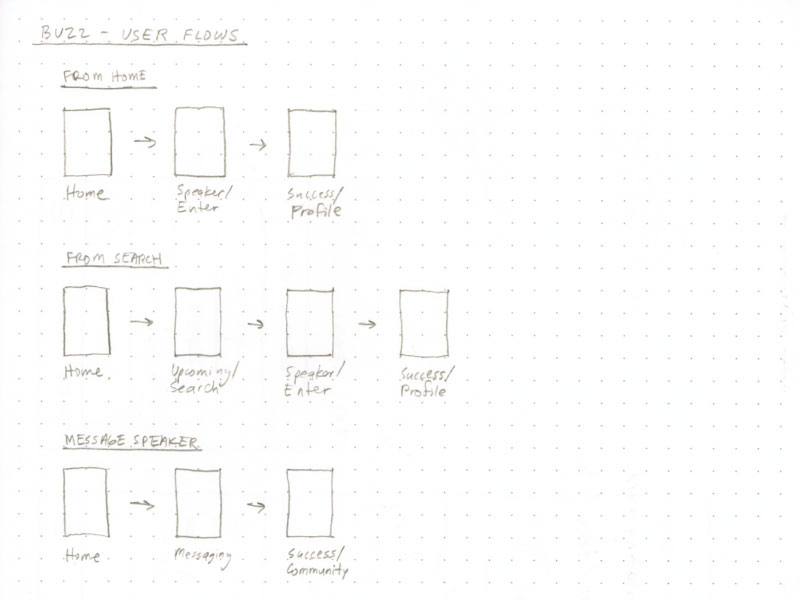 BUZZ - USER FLOWS
FROM HOME
Home
Speaker/
Enter
Success/
Profile
FROM SEARCH
Home
Upcoming/
Search
Speaker/
Enter
Success/
Profile
MESSAGE SPEAKER
Home
Messaging
Success/
Community